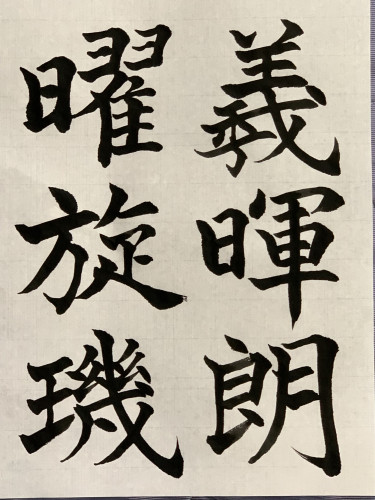 羲暉朗
曜旋璣